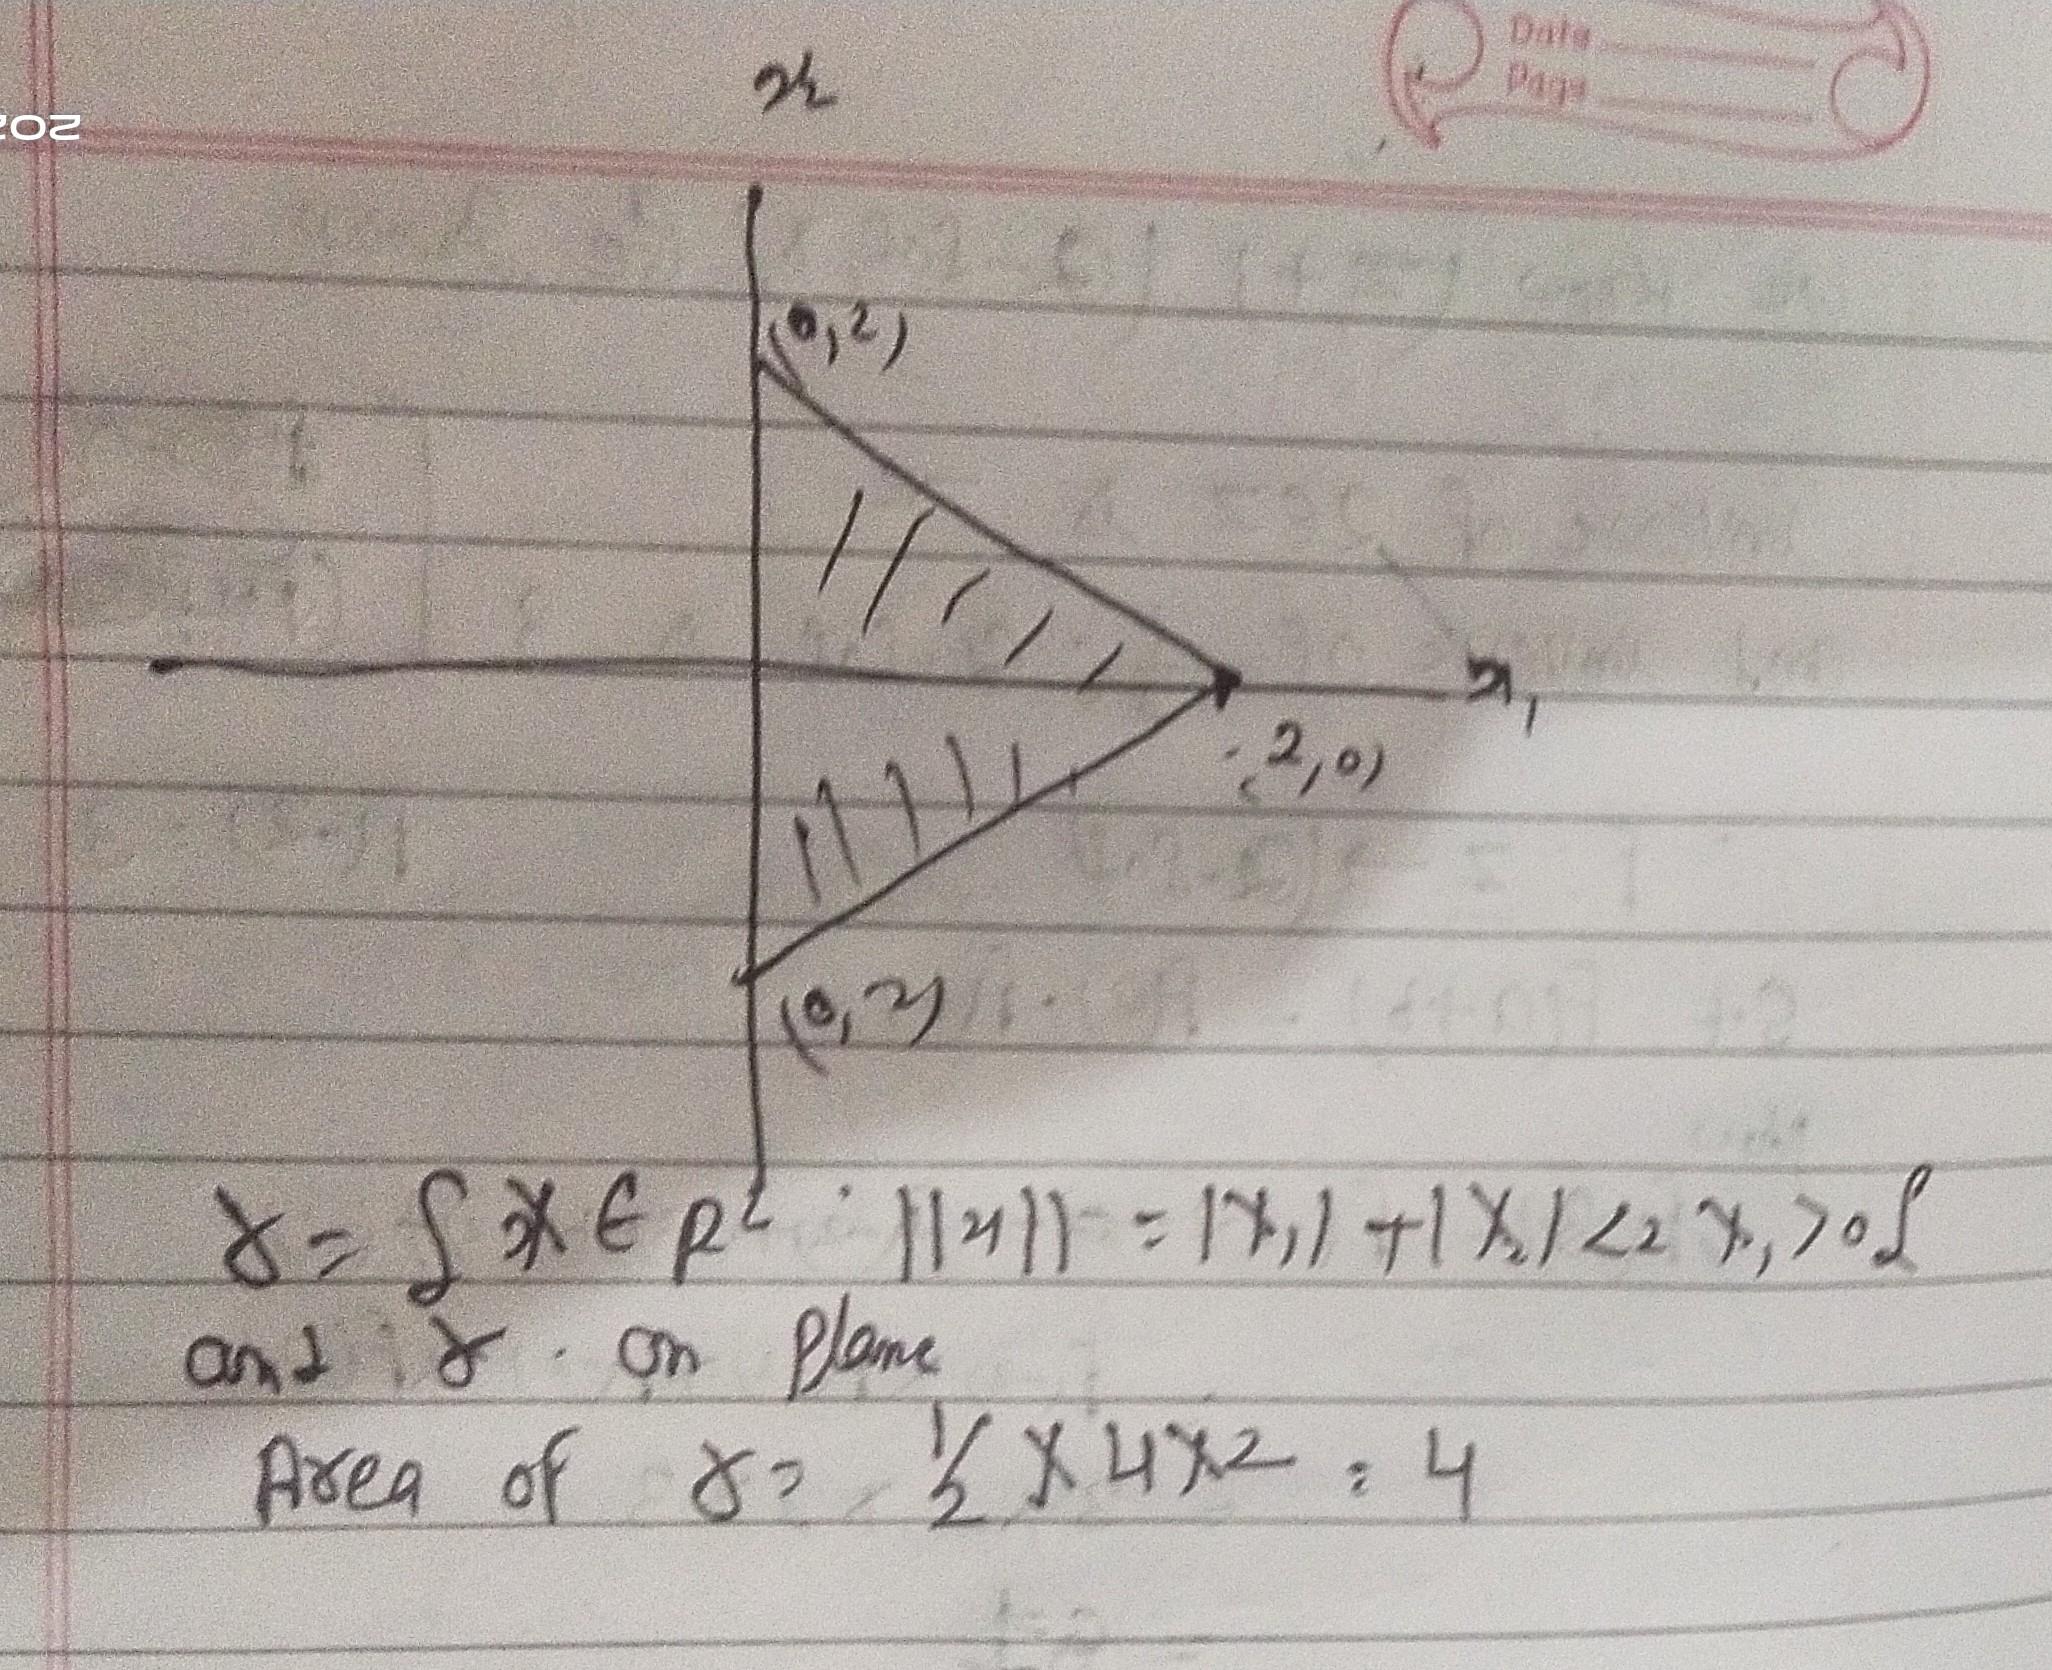 Date
Page
202
x2
(0,2)
x1
(2,0)
(0,-2)
γ = { x ∈ R² : ||x|| = |x₁| + |x₂| <2 x₁ >0}
and γ . on plane
Area of γ = 1/2 x 4 x 2 = 4